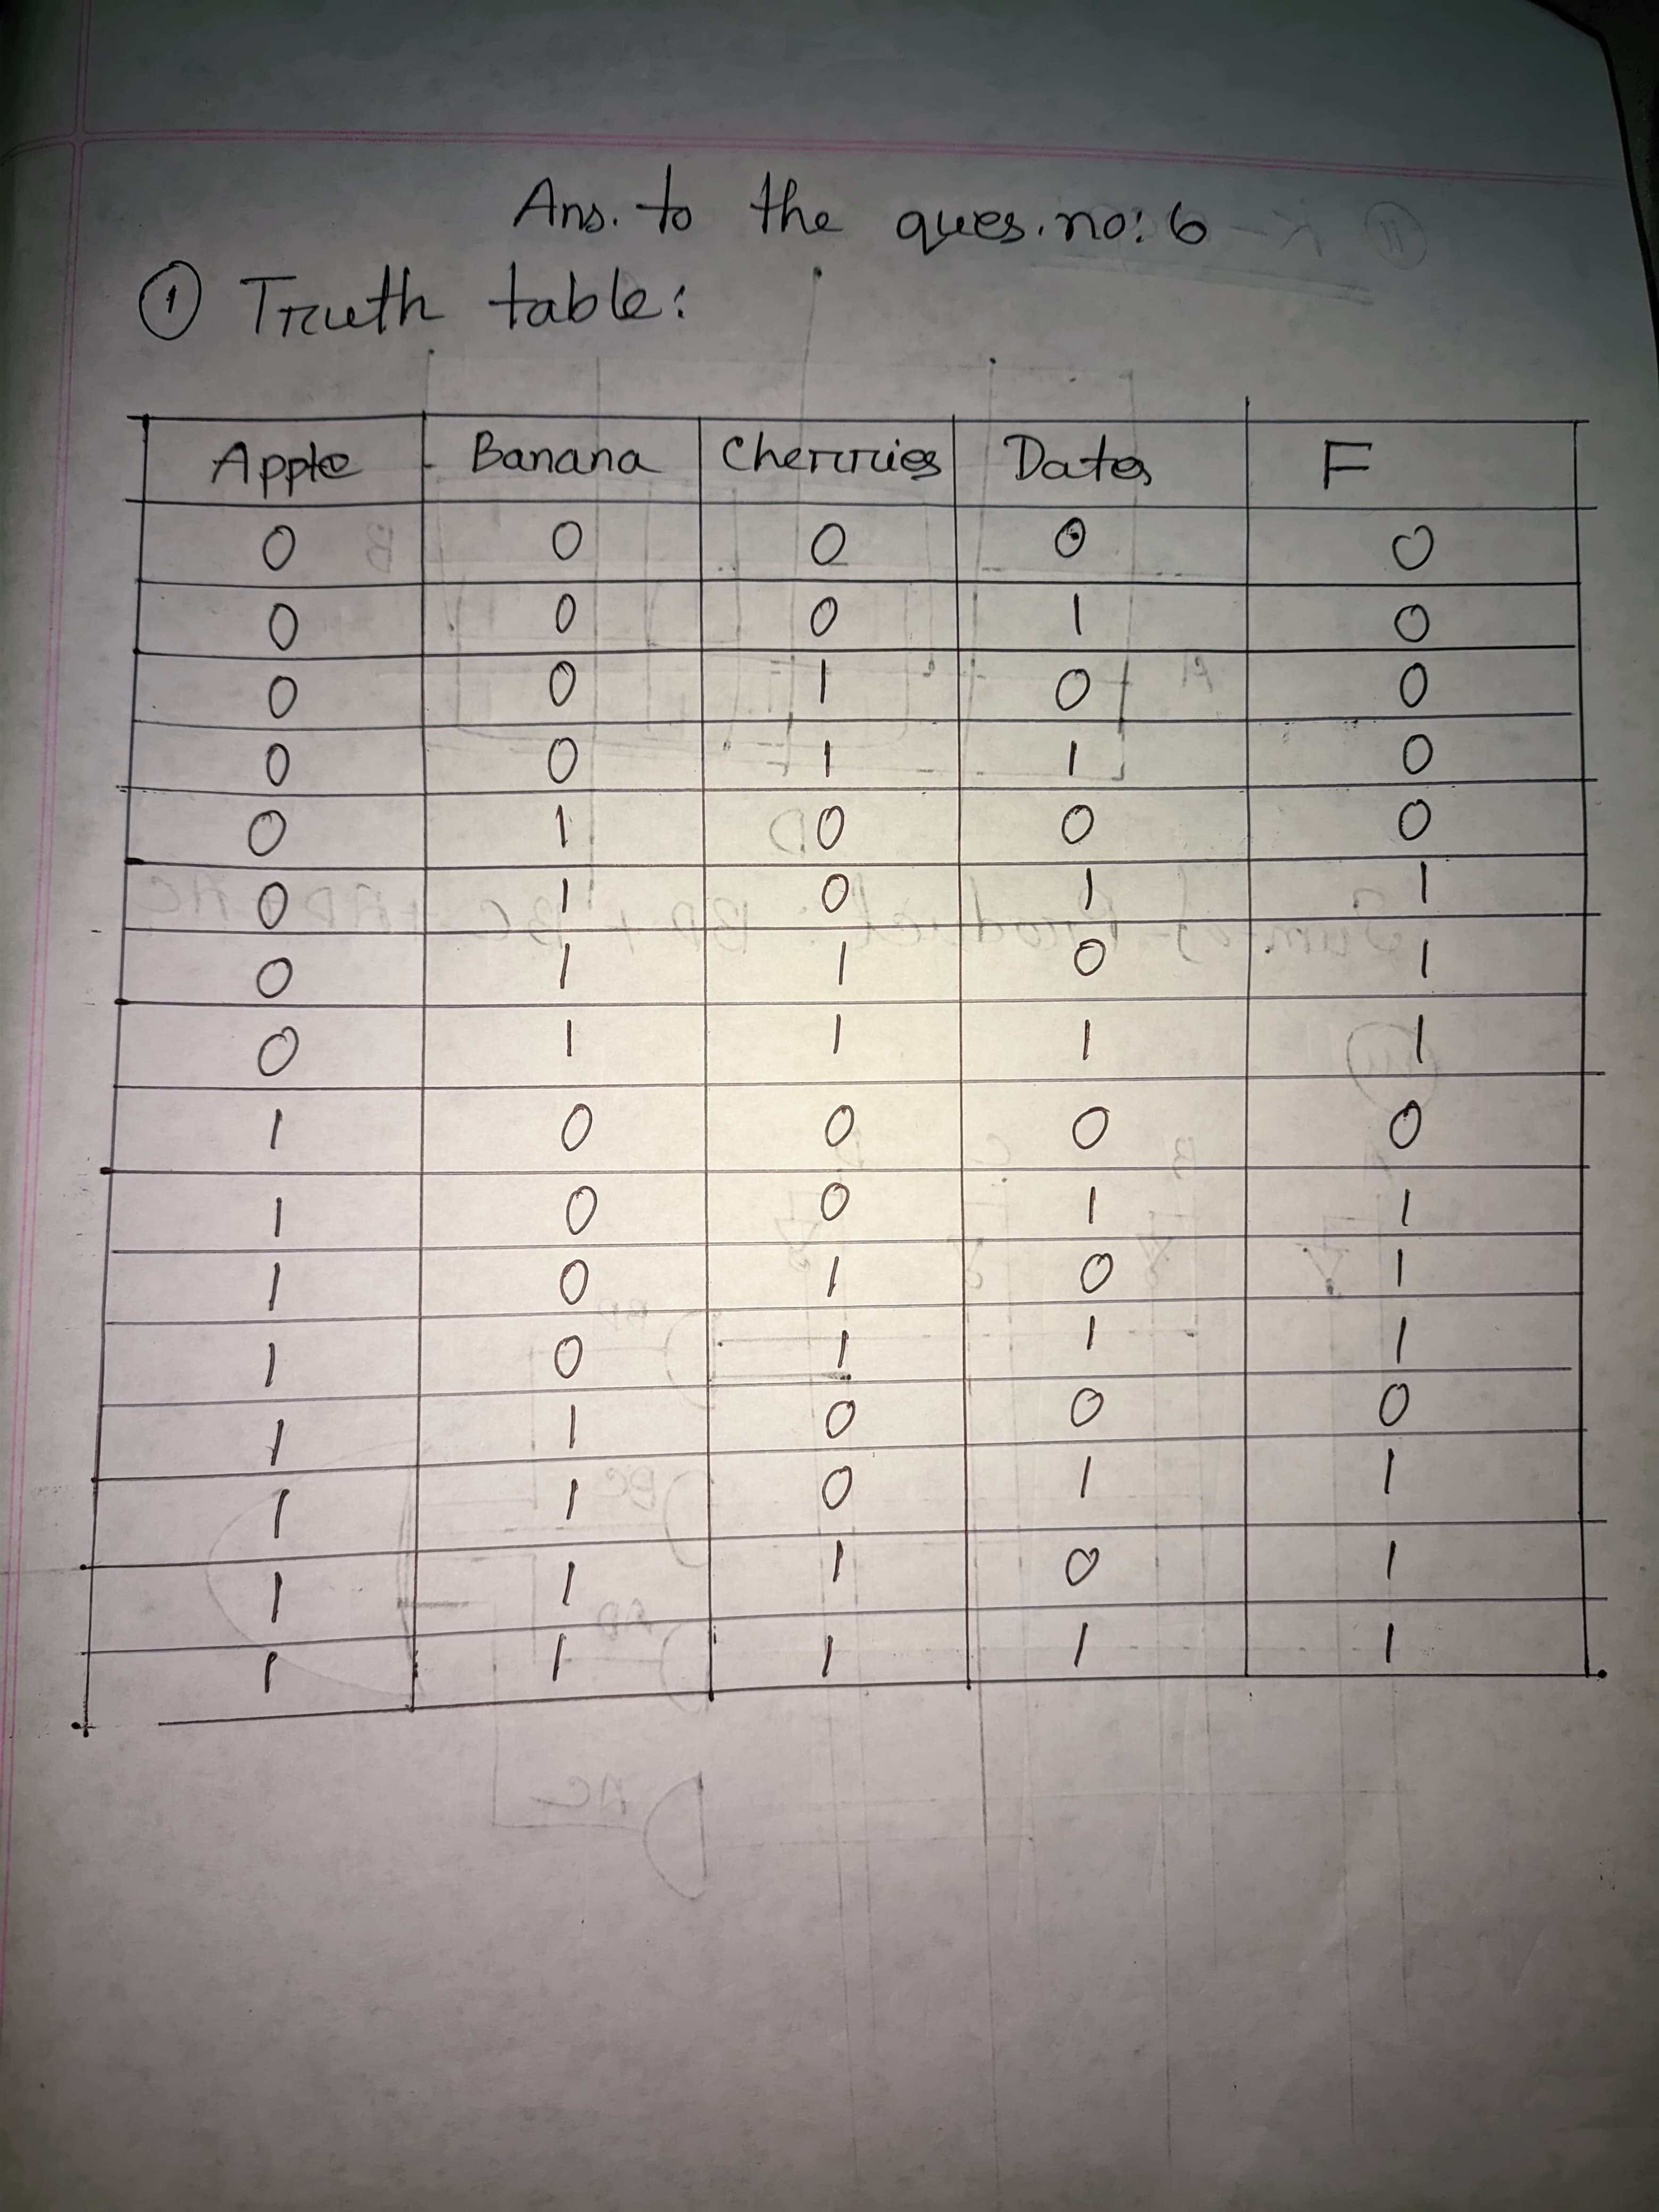 Ans. to the ques. no: 6
① Truth table:
Apple Banana Cherries Dates F
0 0 0 0 0
0 0 0 1 0
0 0 1 0 0
0 0 1 1 0
0 1 0 0 0
0 1 0 1 1
0 1 1 0 1
0 1 1 1 1
1 0 0 0 0
1 0 0 1 1
1 0 1 0 1
1 0 1 1 1
1 1 0 0 0
1 1 0 1 1
1 1 1 0 1
1 1 1 1 1